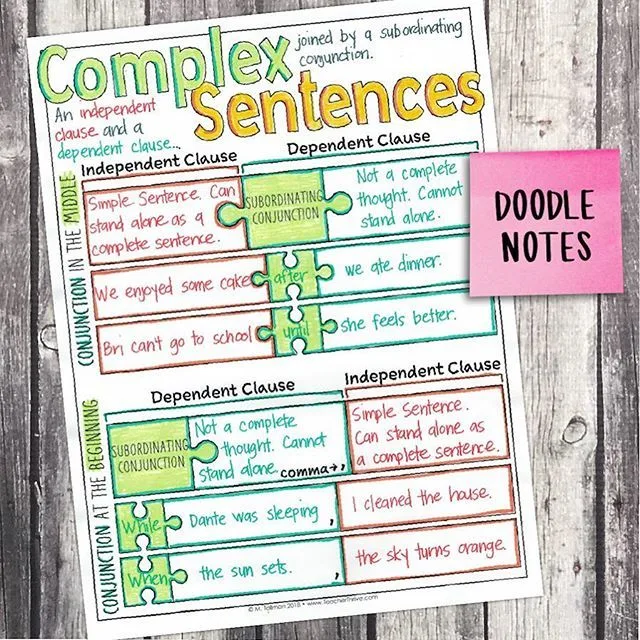 Complex joined by a subordinating
conjunction.
Sentences
An independent
clause and a
dependent clause...
Independent Clause
Dependent Clause
CONJUNCTION IN THE MIDDLE
Simple Sentence. Can
stand alone as a
complete sentence.
SUBORDINATING
CONJUNCTION
Not a complete
thought. Cannot
stand alone.
DOODLE
NOTES
We enjoyed some cake after we ate dinner.
Bri can't go to school until she feels better.
Dependent Clause
Independent Clause
CONJUNCTION AT THE BEGINNING
SUBORDINATING
CONJUNCTION
Not a complete
thought. Cannot
stand alone. comma→,
Simple Sentence.
Can stand alone as
a complete sentence.
While Dante was sleeping , I cleaned the house.
When the sun sets. , the sky turns orange.
© M. Tallman 2018 • www.TeacherThrive.com